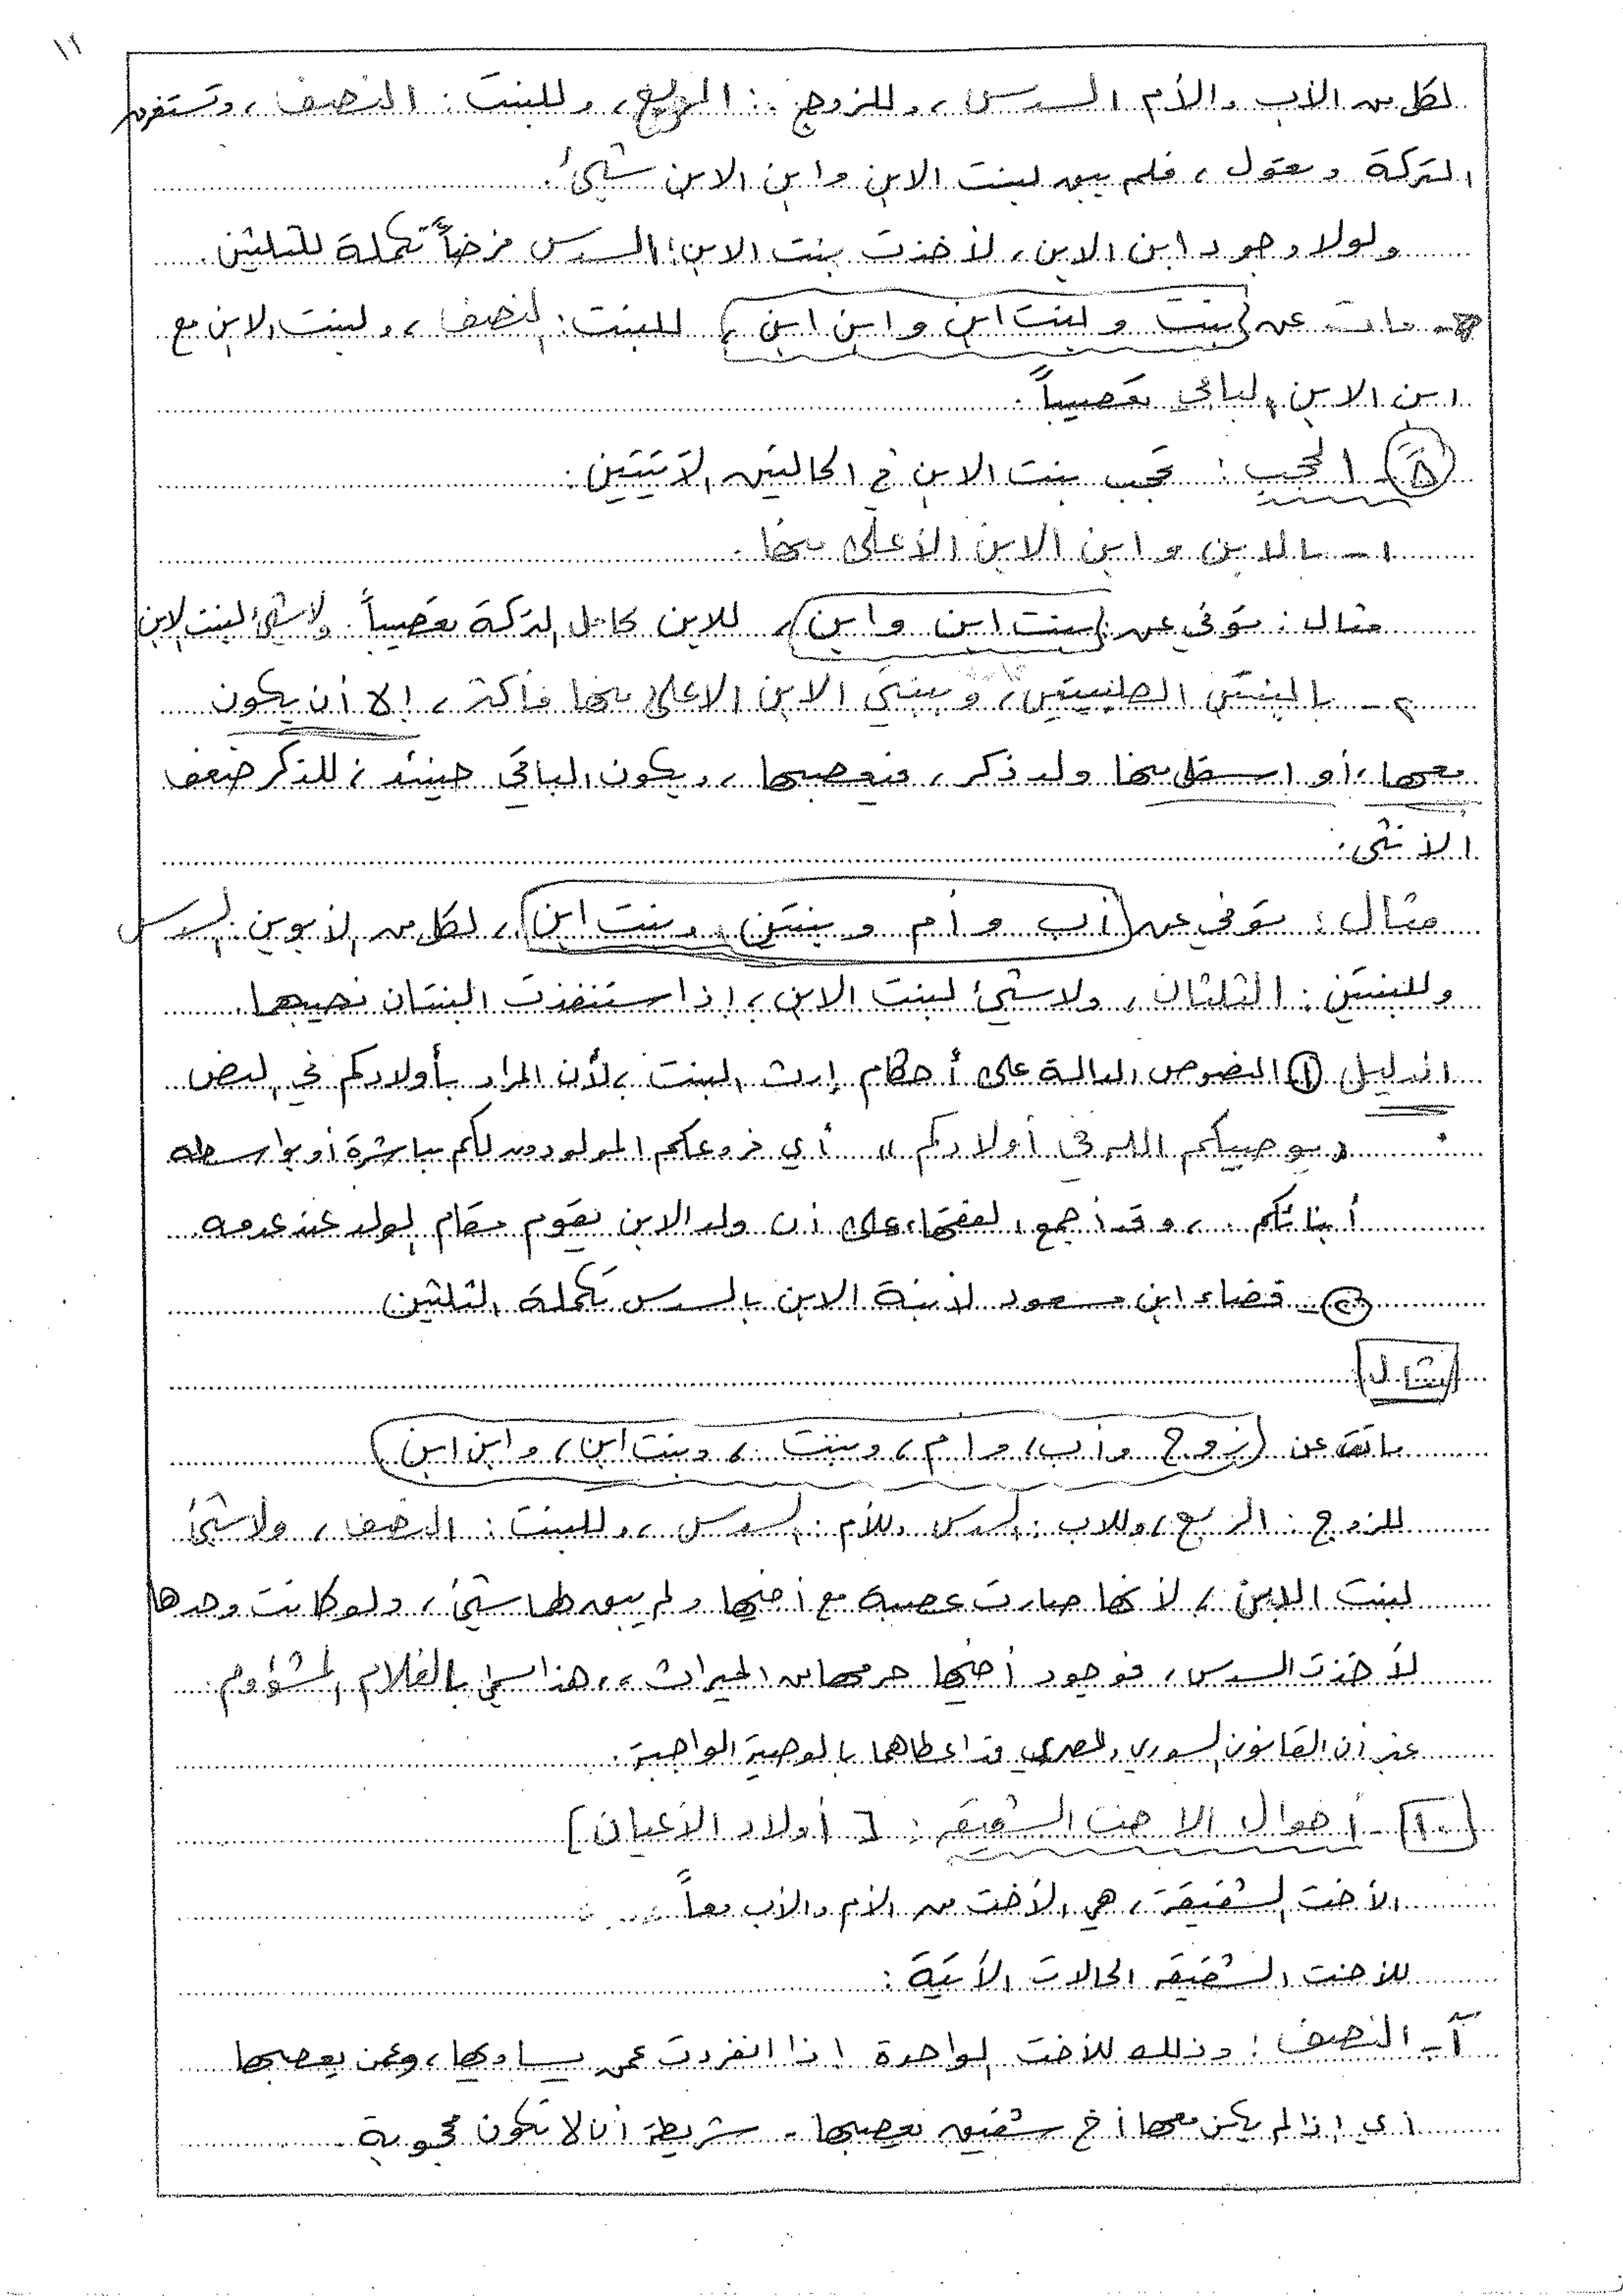 ١٢
لكل من الأب والأم السدس، وللزوج: الربع، وللبنت: النصف، وتستغرق
التركة وتعول، فلم يبق لبنت الابن وابن الابن شيئ.
ولولا وجود ابن الابن، لأخذت بنت الابن: السدس فرضاً تكملة للثلثين.
- مات عن (بنت وبنت ابن وابن ابن)، للبنت: النصف، ولبنت الابن مع
ابن الابن الباقي تعصيباً.
٥ - الحجب: تحجب بنت الابن في الحالتين الآتيتين:
١ - بالابن وابن الابن الأعلى منها.
مثال: توفي عن: (بنت ابن وابن)، للابن كامل التركة تعصيباً. ولا شيئ لبنت الابن
٢ - بالبنتين الصلبيتين، وببنتي الابن الاعلى منها فأكثر، إلا أن يكون
معها، أو اسفل منها ولد ذكر، فيعصبها، ويكون الباقي حينئذ، للذكر ضعف
الأنثى:
مثال: توفي عن (أب وأم وبنتين وبنت ابن)، لكل من الأبوين: السدس
وللبنتين: الثلثان، ولا شيئ لبنت الابن، إذا ستنفذت البنتان نصيبها.
الدليل ١ النصوص الدالة على أحكام إرث البنت، لأن المراد بأولادكم في النص
«يوصيكم الله في أولادكم» أي فروعكم المولودون لكم مباشرة أو بواسطة
أبنائكم، وقد أجمع الفقهاء على أن ولد الابن يقوم مقام الولد عند عدمه.
٢ - قضاء ابن مسعود لابنة الابن بالسدس تكملة الثلثين
مثال
ماتت عن (زوج وأب، وأم، وبنت، وبنت ابن، وابن ابن)
للزوج: الربع، وللاب: السدس وللأم: السدس، وللبنت: النصف، ولا شيئ
لبنت الابن، لأنها صارت عصبة مع أخيها ولم يبق لهما شيئ، ولو كانت وحدها
لأخذت السدس، فوجود أخيها حرمها من الميراث، هذا سمي بالغلام المشؤوم.
غير أن القانون السوري والمصري قد اعطاهما بالوصية الواجبة.
١٠ - أحوال الاخت الشقيقة: [أولاد الأعيان]
الأخت الشقيقة، هي الأخت من الأم والأب معاً
للأخت الشقيقة الحالات الآتية:
آ - النصف: وذلك للأخت الواحدة إذا انفردت عمن يساويها، وعمن يعصبها
أي إذا لم يكن معها أخ شقيق يعصبها - شريطة أن لا تكون محجوبة